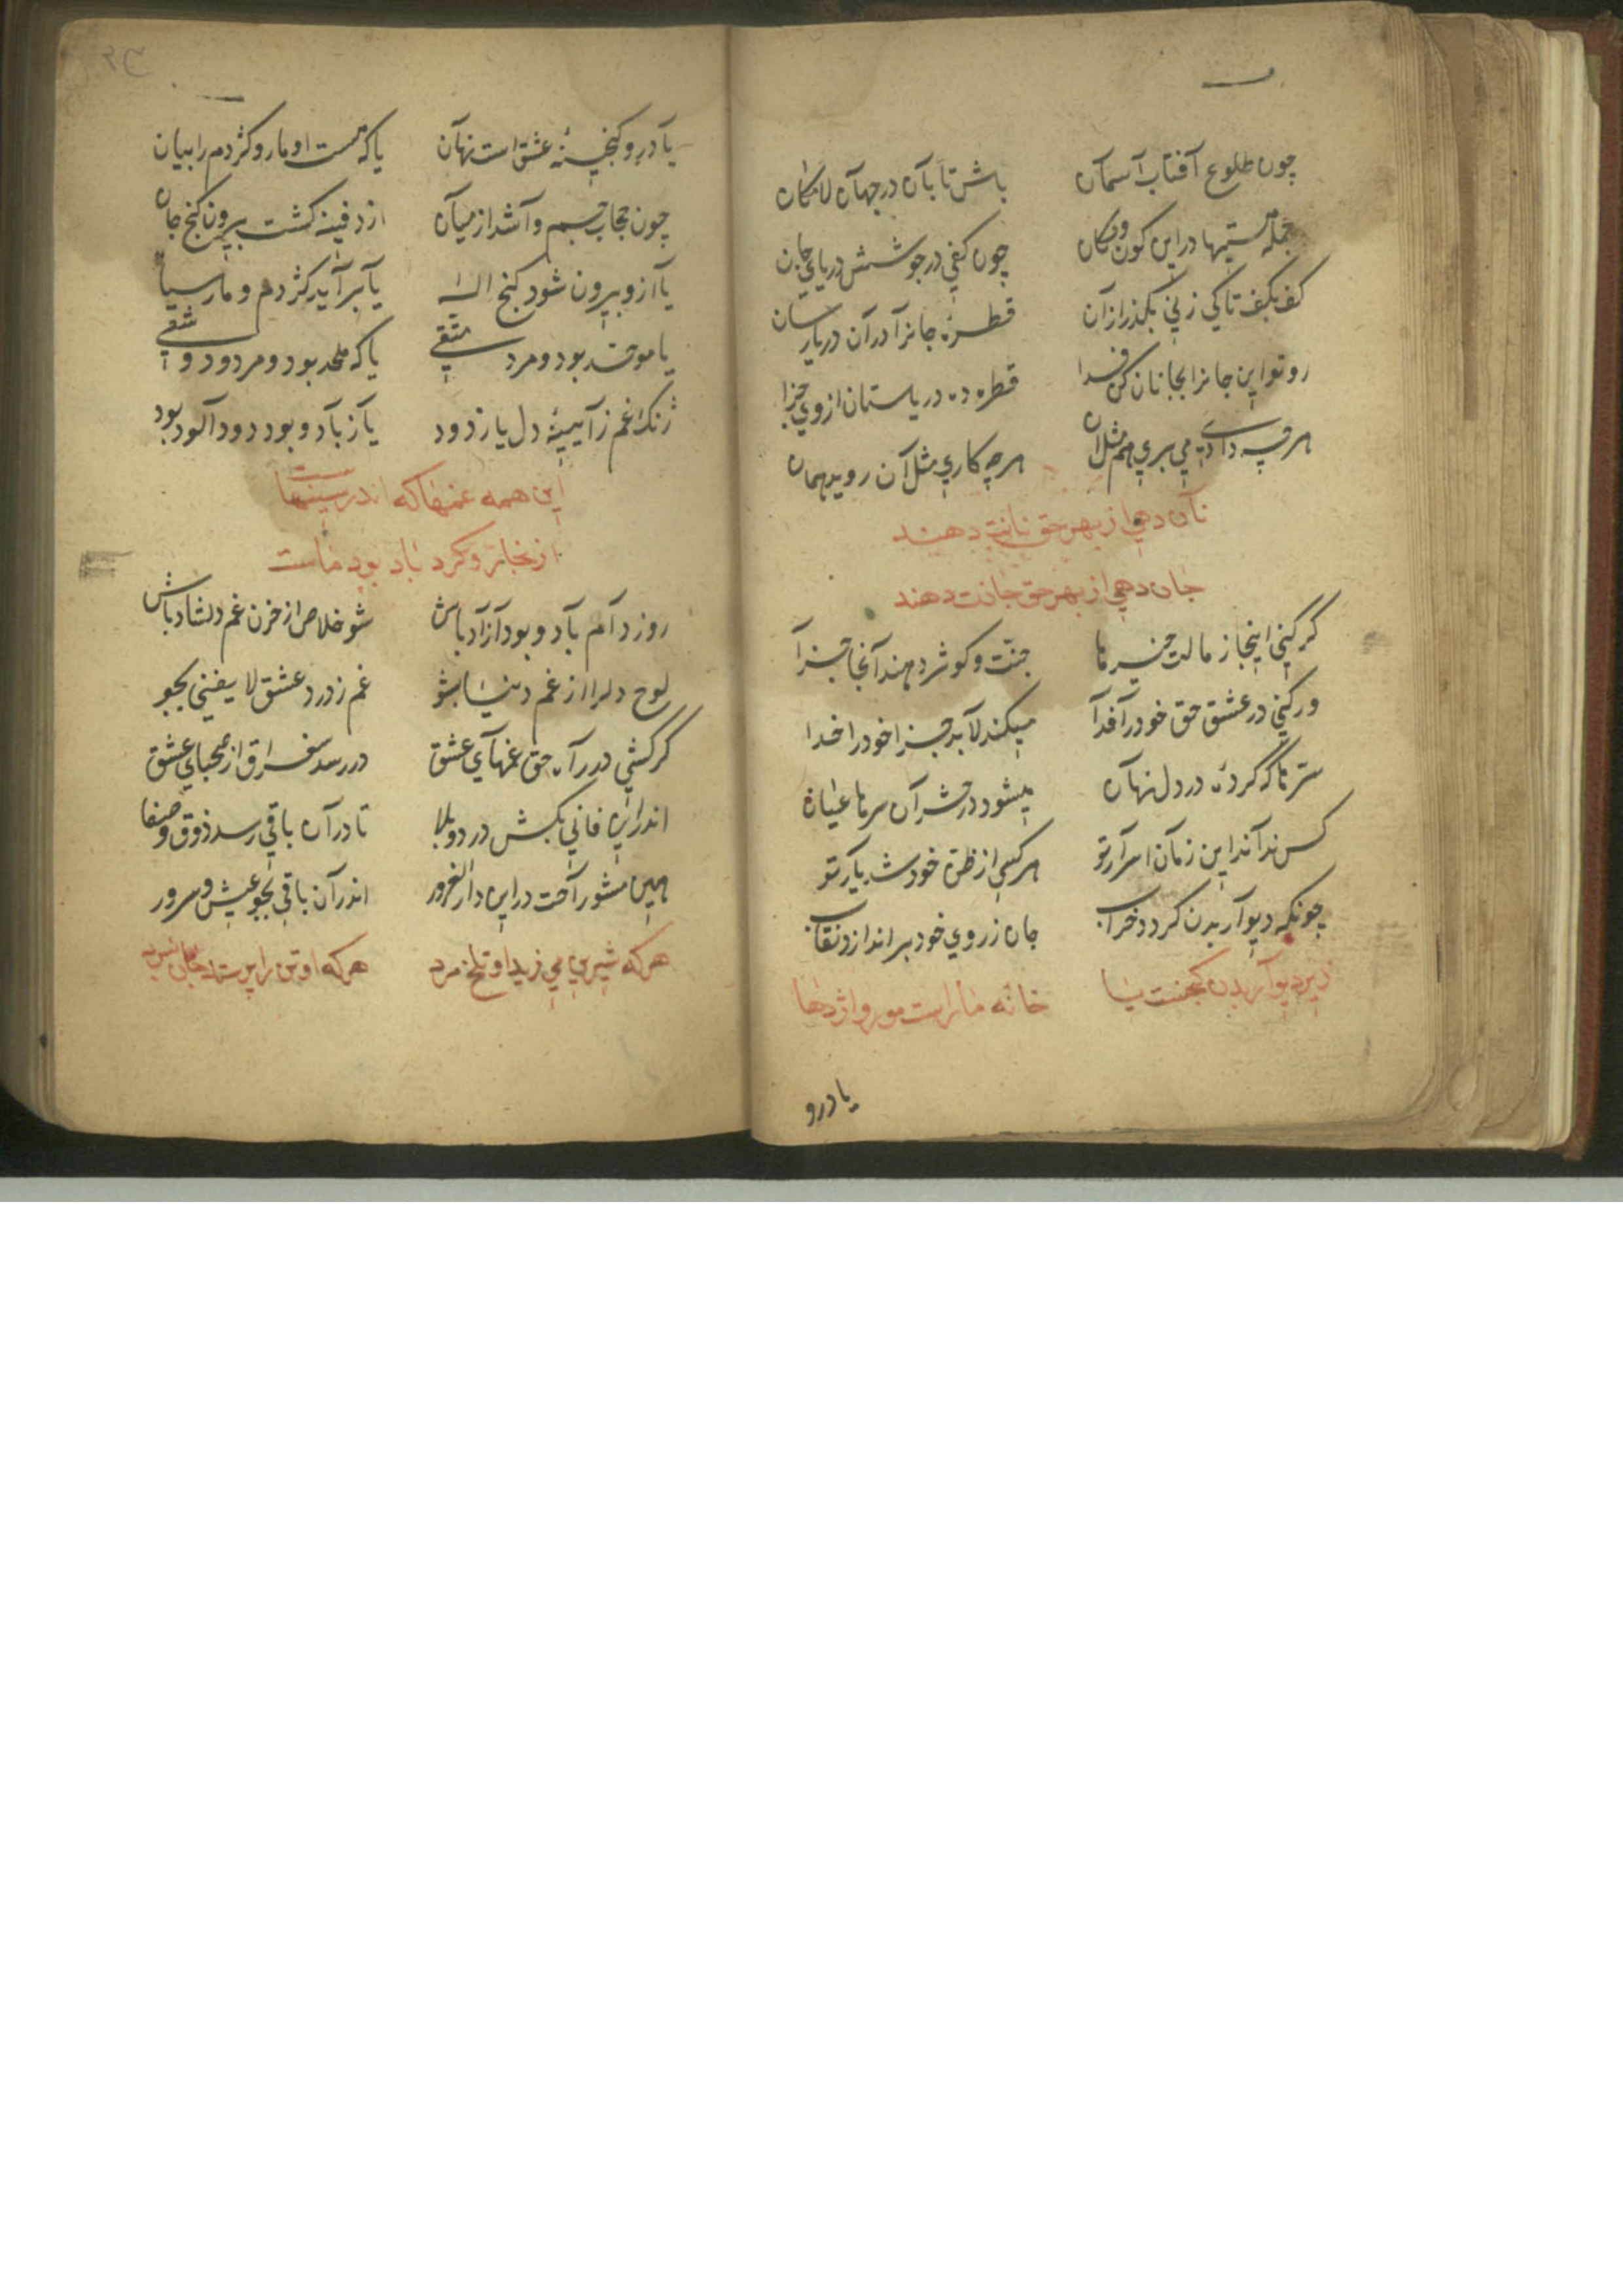 چون طلوع آفتاب آسمان باش تابان در جهان لامکان
جمله هستیها در این کون و مکان چون کفی در جوشش دریای جان
کف بکف تا کی زنی بگذر از آن قطرهٔ جانرا در آن دریا رسان
رو تو این جانرا بجانان کن فدا قطره ده دریا ستان از وی جزا
هر چه دادی می بری هم مثل آن هر چه کاری مثل آن روید همان
نان دهی از بهر حق نانت دهند
جان دهی از بهر حق جانت دهند
گر کنی اینجا ز مالت خیرها جنت و کوثر دهند آنجا جزا
ور کنی در عشق حق خود را فدا میکند لابد جزا خود را خدا
سرها که کردهٔ در دل نهان میشود در حشر آن سرها عیان
کس نداند این زمان اسرار تو هر کسی از ظن خود شد یار تو
چونکه دیوار بدن گردد خراب جان ز روی خود براندازد نقاب
زیر دیوار بدن گنجست یا خانه ماراست مور و اژدها
یا درو
یا درو گنجینهٔ عشق است نهان یا که هست او مار و کژدم را بیان
چون حجاب جسم وا شد از میان از دفینه گشت بیرون گنج جان
یا ازو بیرون شود گنج اله یا برآید کژدم و مار سیاه
یا موحد بود و مرد متقی یا که ملحد بود و مردود و شقی
ژنک غم ز آیینهٔ دل یا زدود یا ز باد و بود دود آلود بود
این همه غمها که اندر سینهاست
از بخار و گرد باد بود ماست
روز دام باد و بود آزاد باش شو خلاص از حزن غم دلشاد باش
لوح دلرا از غم دنیا بشو غم ز درد عشق لا یفنی بجو
گر کشی در راه حق غمهای عشق در رسد سغراق از صهبای عشق
اندر این فانی بکش درد و بلا تا در آن باقی رسد ذوق و صفا
هین مشو راحت در این دار الغرور اندر آن باقی بجو عیش و سرور
هر که شیرین می زید او تلخ مرد هر که او تن را پرستد جان نبرد